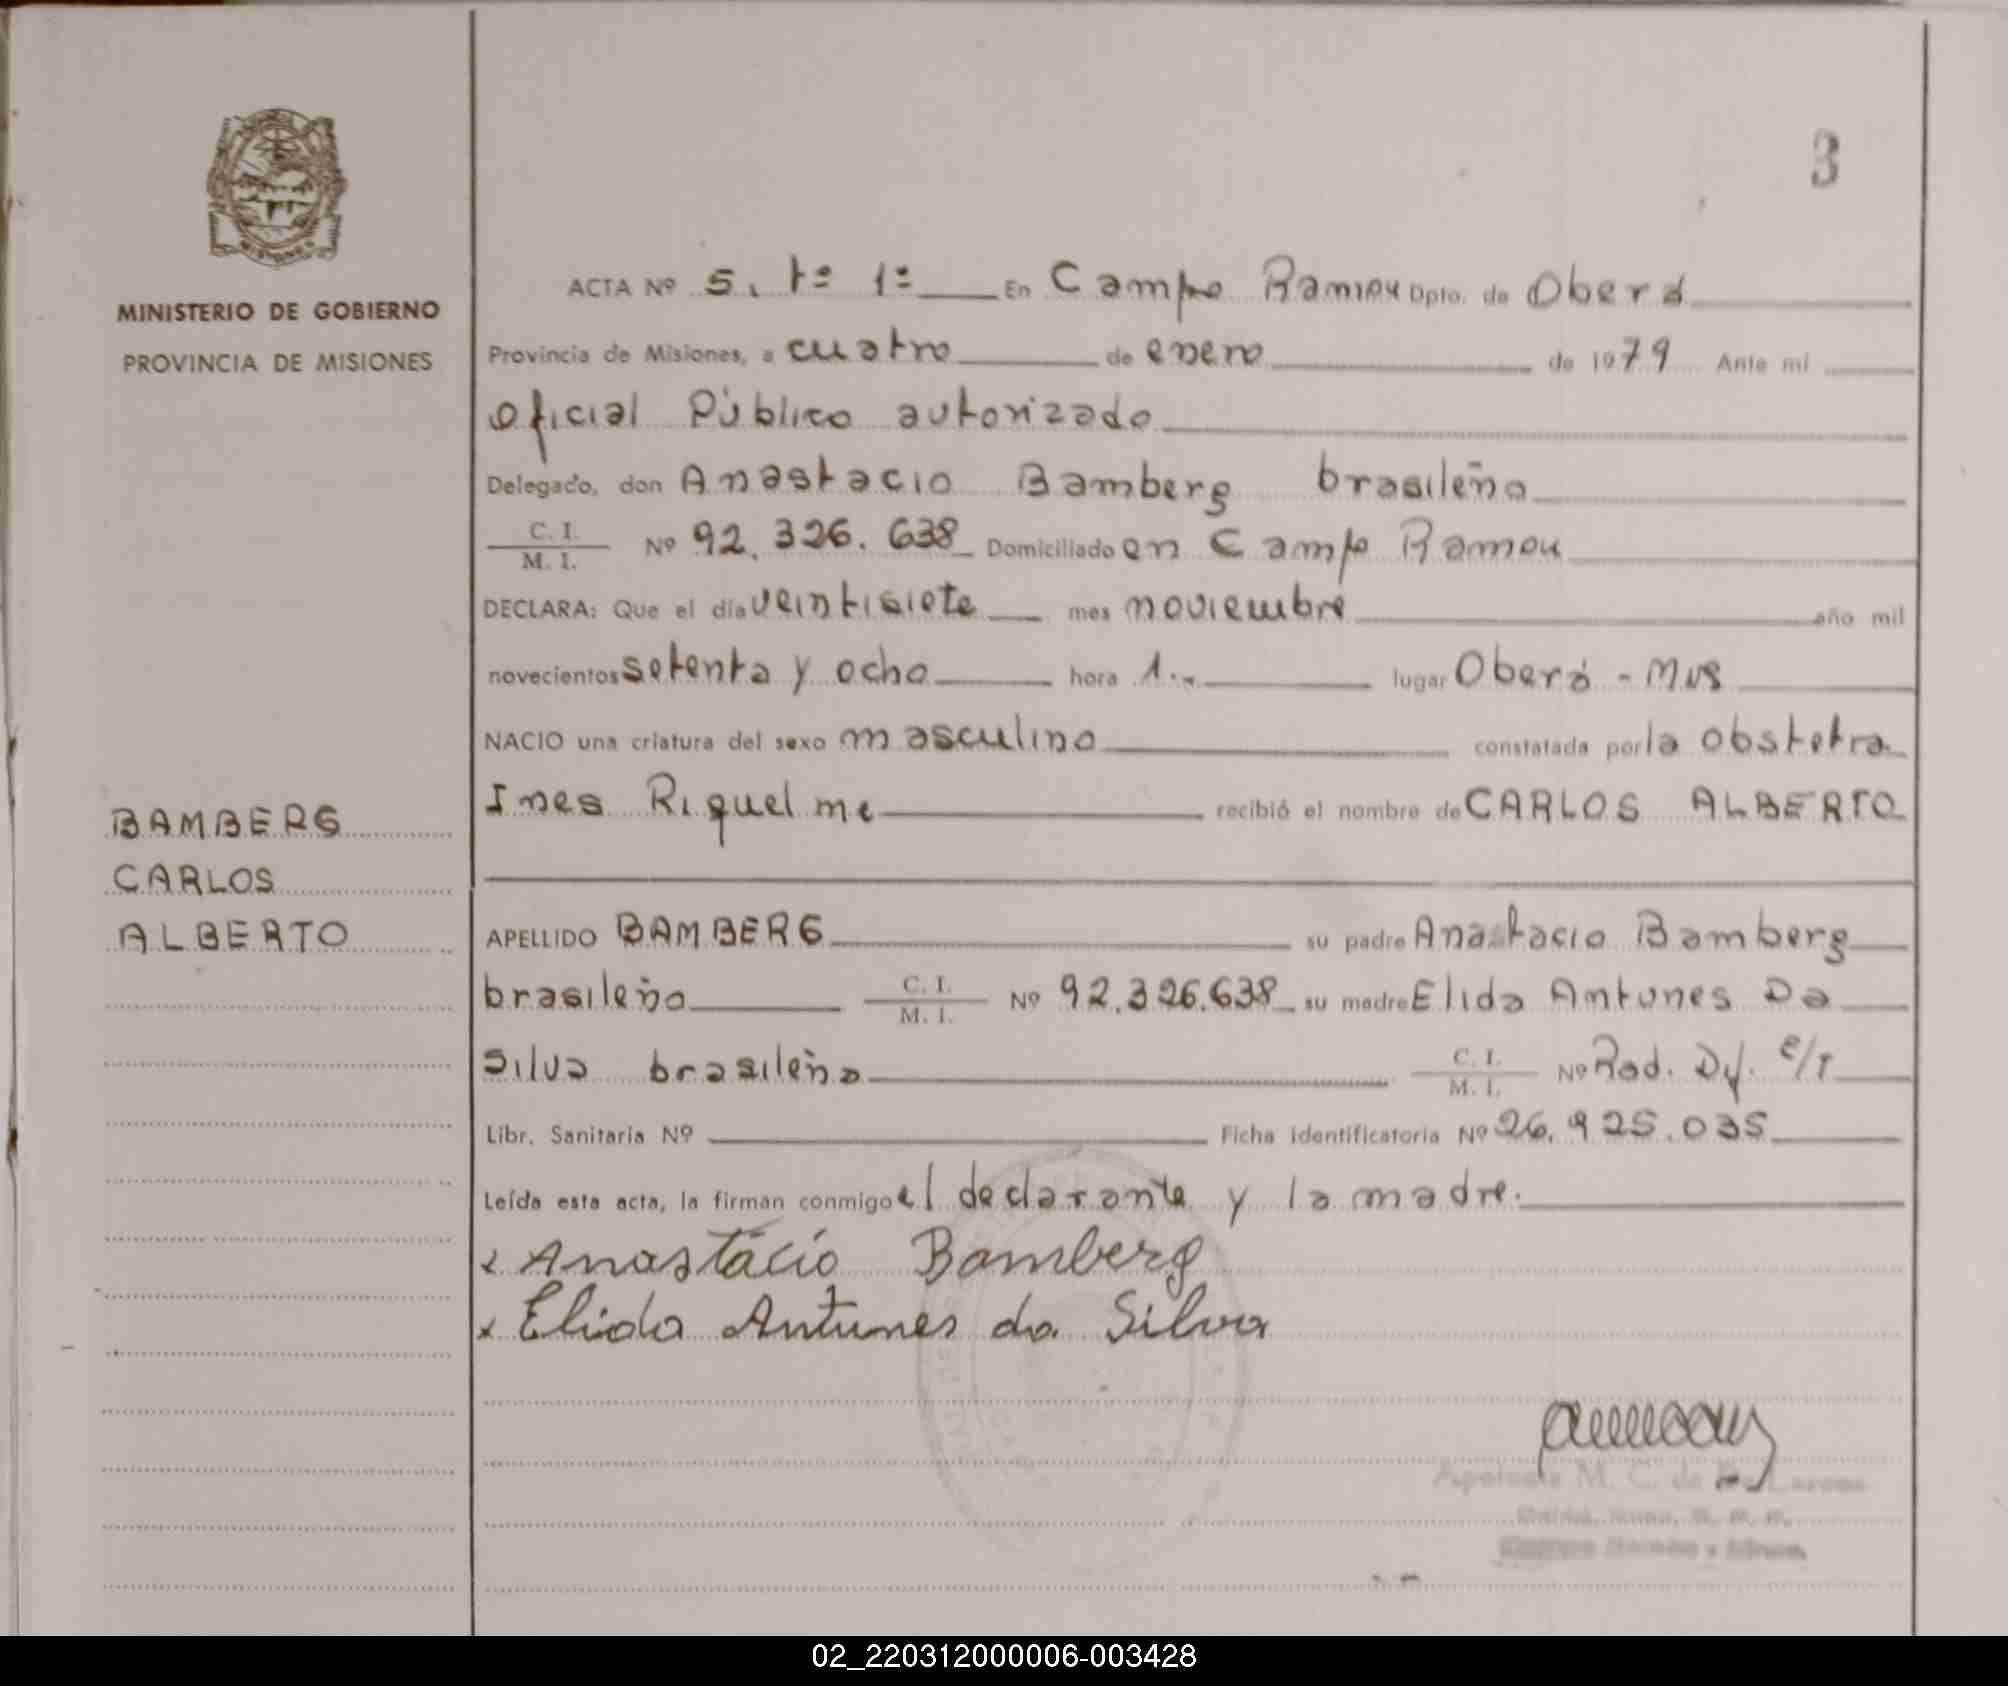 3
MISIONES
MINISTERIO DE GOBIERNO
PROVINCIA DE MISIONES
BAMBERG
CARLOS
ALBERTO
ACTA Nº 5. tº 1º En Campo Ramon Dpto. de Oberá
Provincia de Misiones, a cuatro de enero de 1979 Ante mi
Oficial Público autorizado
Delegado, don Anastacio Bamberg brasileño
C. I. / M. I. Nº 92.326.638 Domiciliado en Campo Ramon
DECLARA: Que el día veintisiete mes noviembre año mil
novecientos setenta y ocho hora 1.. lugar Oberá - Mns
NACIO una criatura del sexo masculino constatada por la obstetra
Ines Riquelme recibió el nombre de CARLOS ALBERTO
APELLIDO BAMBERG su padre Anastacio Bamberg
brasileño C. I. / M. I. Nº 92.326.638 su madre Elida Antunes Da
Silva brasileña C. I. / M. I. Nº Rad. Def. e/t
Libr. Sanitaria Nº Ficha identificatoria Nº 26.925.035
Leída esta acta, la firman conmigo el declarante y la madre.
x Anastácio Bamberg
x Elida Antunes da Silva
M. C. de
02_220312000006-003428